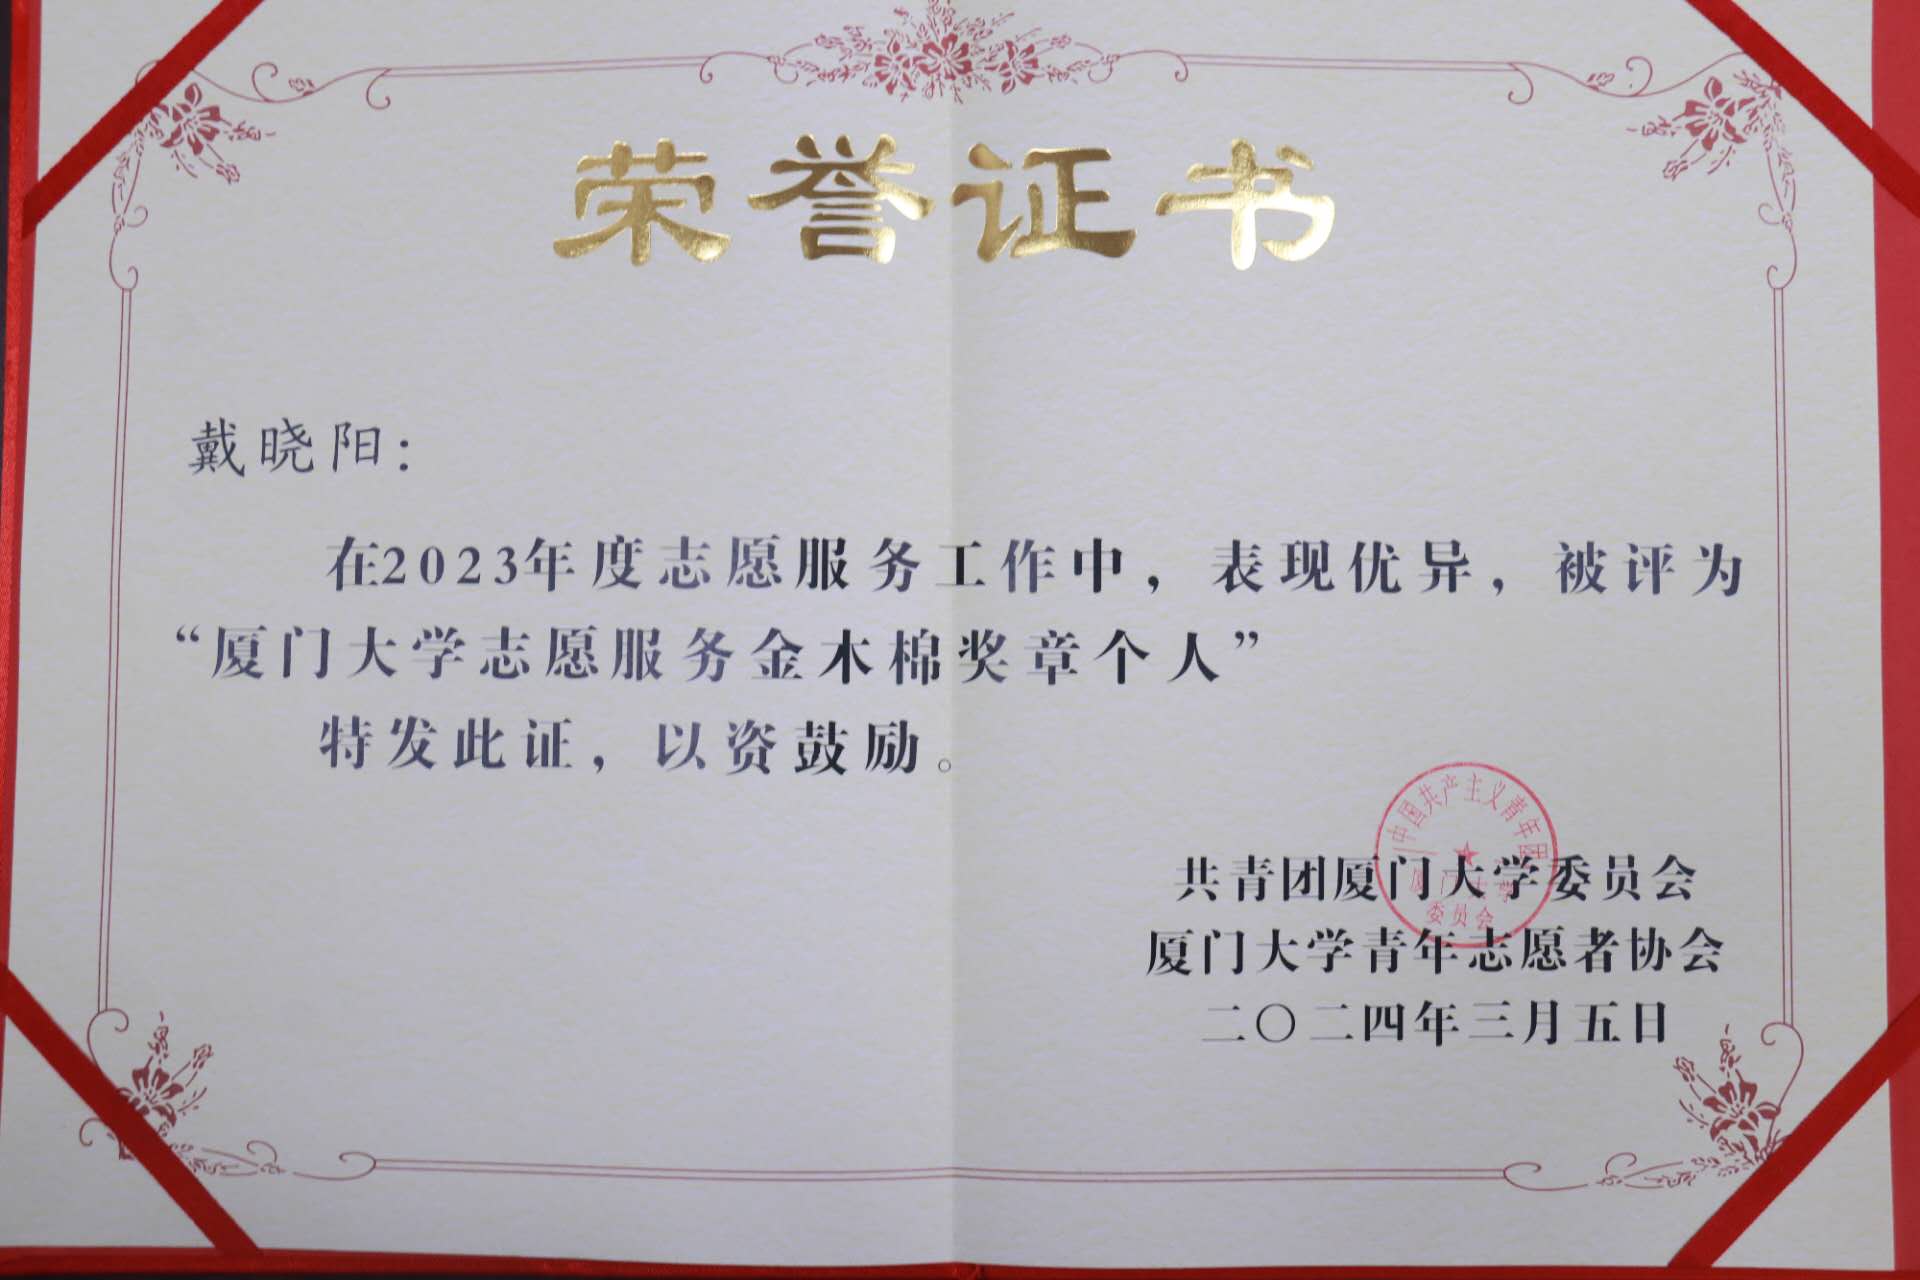 荣誉证书
戴晓阳：
在2023年度志愿服务工作中，表现优异，被评为
“厦门大学志愿服务金木棉奖章个人”
特发此证，以资鼓励。
中国共产主义青年团
厦门大学
委员会
共青团厦门大学委员会
厦门大学青年志愿者协会
二〇二四年三月五日